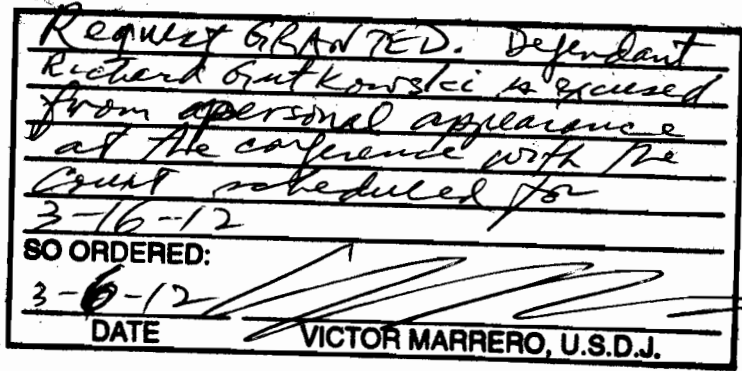 Request GRANTED. Defendant
Richard Gutkowski is excused
from a personal appearance
at the conference with the
Court scheduled for
3-16-12
SO ORDERED:
3-6-12
DATE VICTOR MARRERO, U.S.D.J.